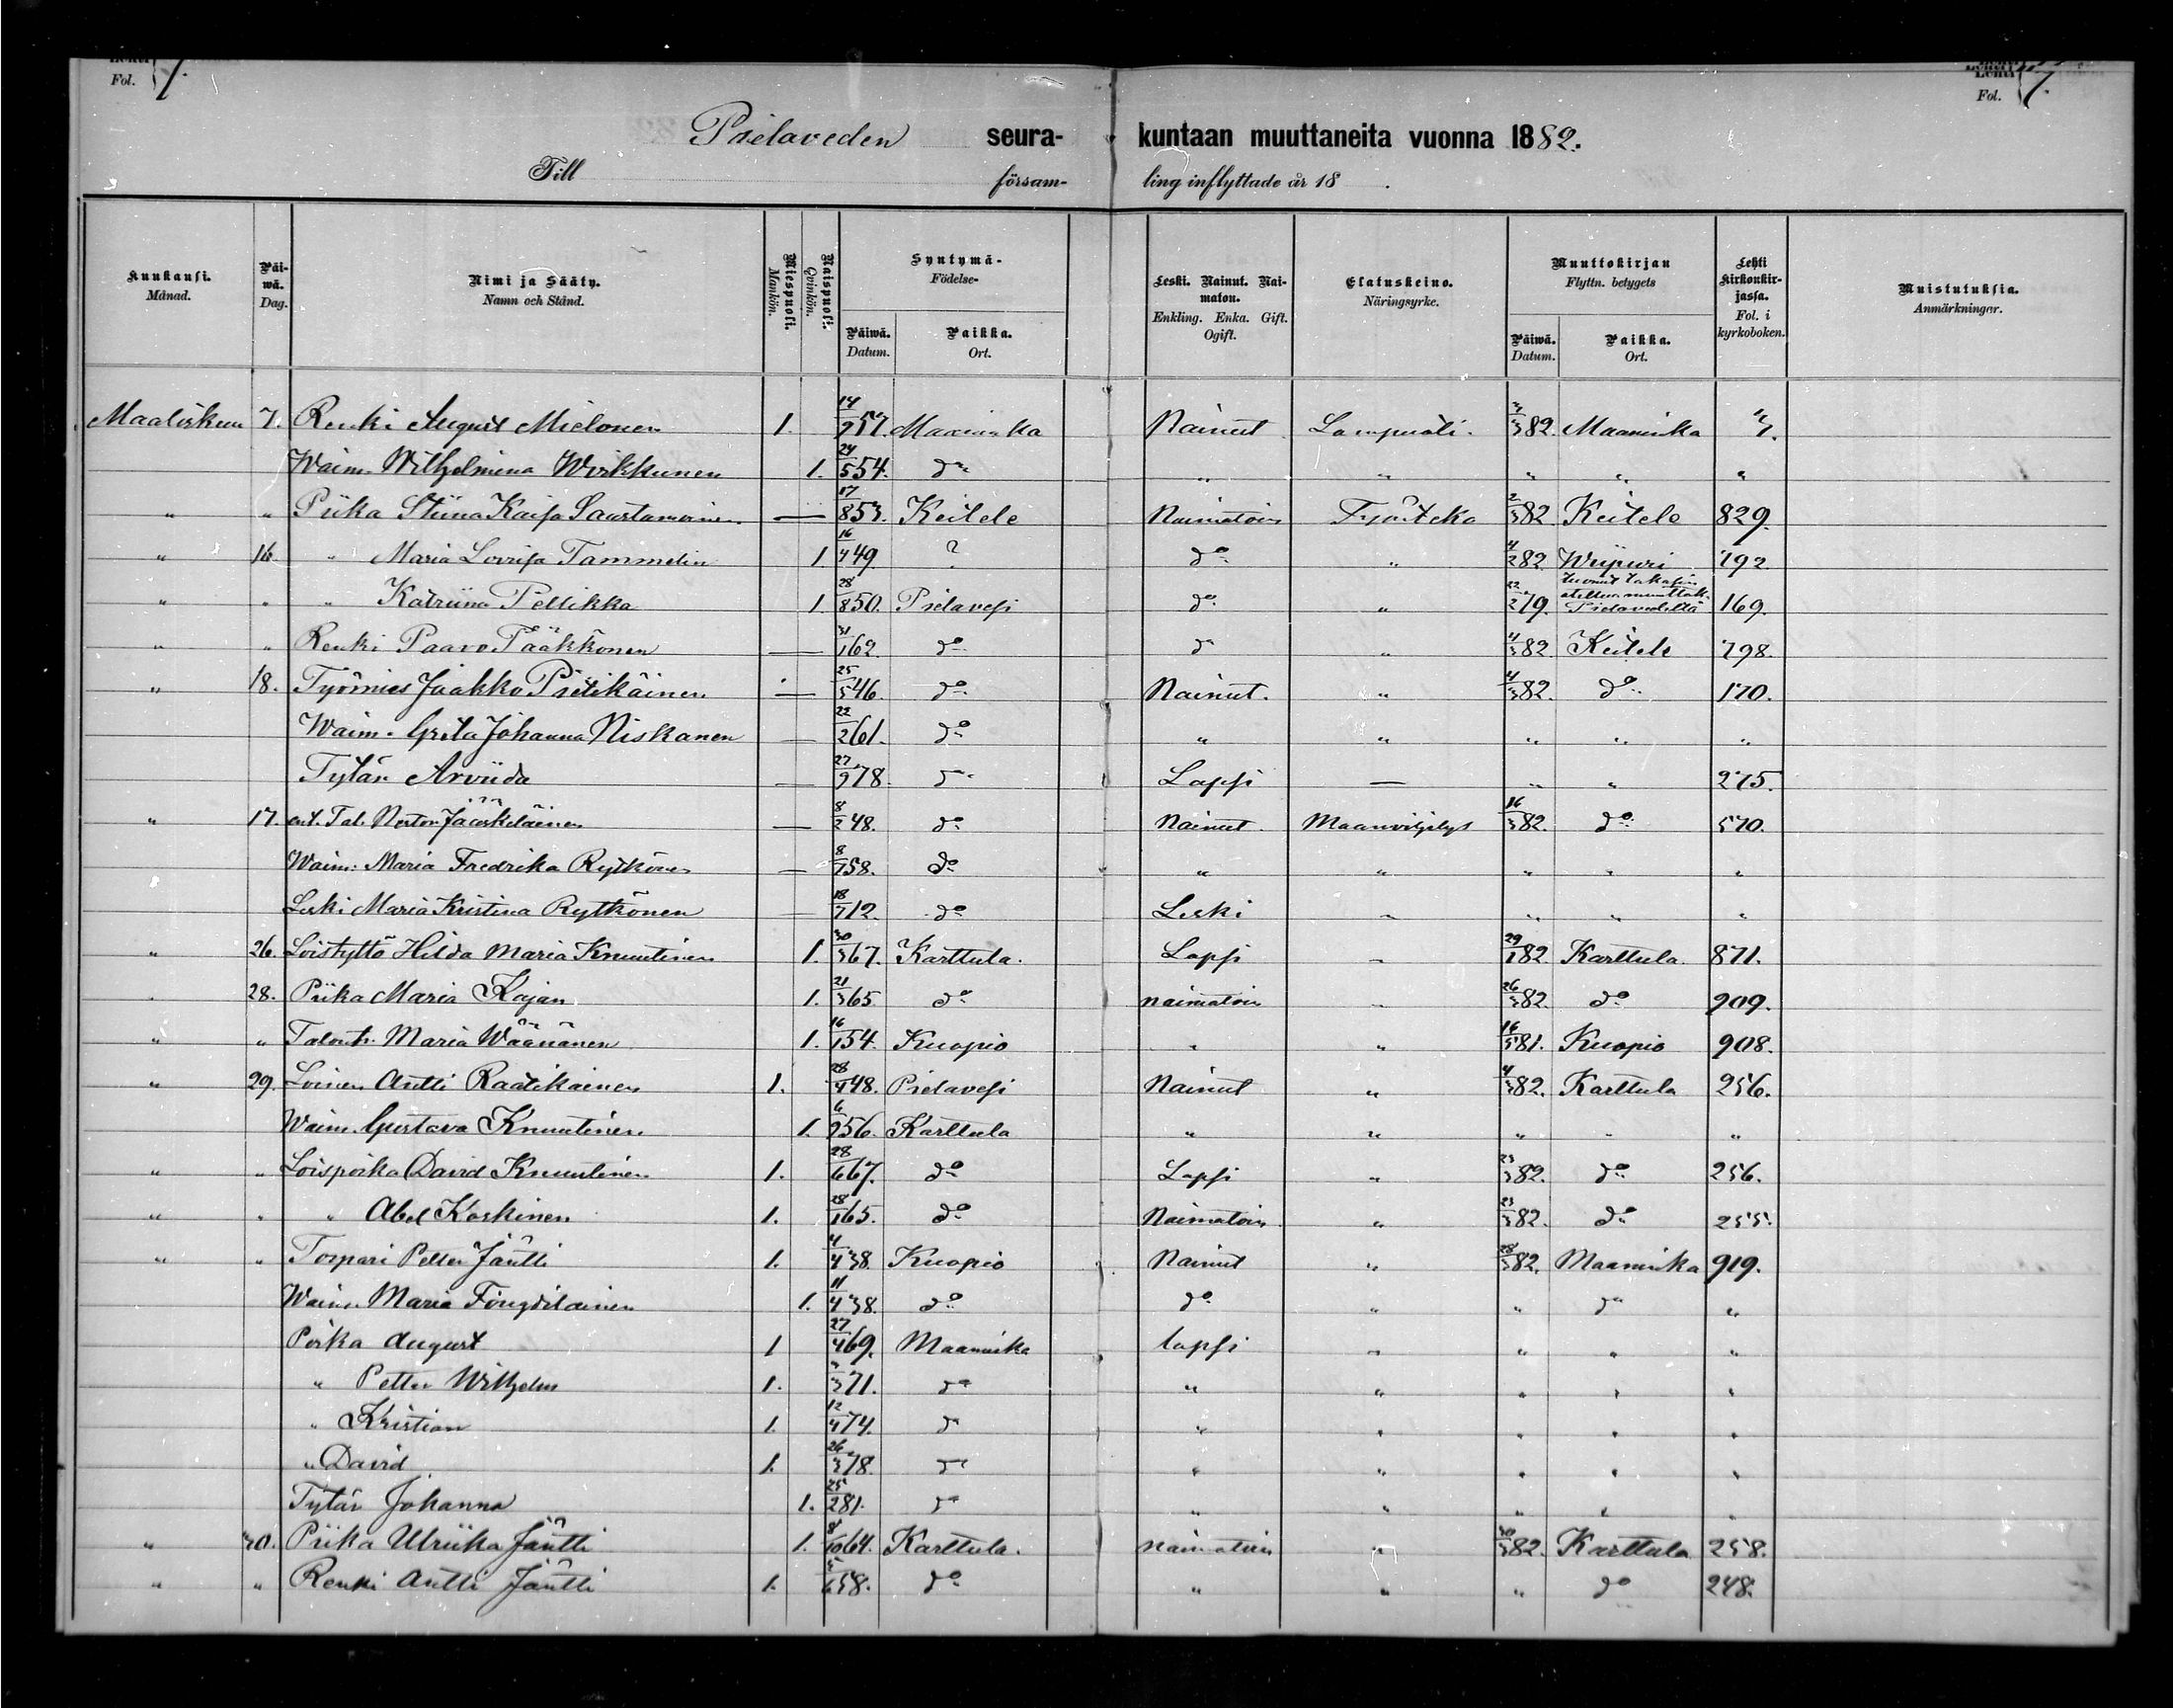 Lehti Fol. 7.
Lehti Fol. 7.
Pielaveden seura- kuntaan muuttaneita vuonna 1882.
Till församling inflyttade år 18 .
Kuukausi. Månad. Päiwä. Dag. Nimi ja Sääty. Namn och Stånd. Miespuoli. Mankön. Naispuoli. Qvinkön. Syntymä- Födelse- Päiwä. Datum. Paikka. Ort. Leski. Nainut. Naimaton. Enkling. Enka. Gift. Ogift. Elatuskeino. Näringsyrke. Muuttokirjan Flyttn. betygets Päiwä. Datum. Paikka. Ort. Lehti kirkonkirjassa. Fol. i kyrkoboken. Muistutuksia. Anmärkningar.
Maaliskuu 7. Renki August Mielonen 1. 14/9 57. Maaninka Nainut Lampuoti. 82. Maaninka 7.
Waim. Wilhelmina Wirkkunen 1. 24/5 54. do " " " " "
" " Piika Stiina Kaisa Saastamoinen — 17/8 53. Keitele Naimatoin Työnteko 2/3 82. Keitele 829.
" 16. " Maria Lovisa Tammelin 1 16/4 49 ? do " 4/2 82 Wiipuri 792.
" " " Katriina Pellikka 1. 28/8 50. Pielavesi do " 22/2 79. tuonut takasin muuttok. Pielavedeltä 169.
" " Renki Paavo Pääkkönen — 31/1 62. do do " 4/3 82. Keitele 798.
" 18. Työmies Jaakko Pietikäinen — 25/5 46. do Nainut. " 4/3 82. do 170.
Waim. Greta Johanna Niskanen — 22/2 61. do " " " " "
Tytär Arviida — 27/9 78. do Lapsi — " " 275.
" 17. ent. Tal. Nestor Jääskeläinen — 8/2 48. do Nainut. Maanviljelys 16/3 82. do 570.
Waim: Maria Fredrika Rytkönen — 8/7 58. do " " " " "
Leski Maria Kristina Rytkönen — 18/7 12. do Leski " " " "
" 26. Loistyttö Hilda Maria Knuutinen 1. 30/3 67. Karttula. Lapsi " 29/1 82. Karttula. 871.
" 28. Piika Maria Kajan 1. 21/3 65 do naimatoin " 26/3 82. do 909.
" " Talontr. Maria Wäänänen 1. 16/1 54. Kuopio " " 16/5 81. Kuopio 908.
" 29. Loinen Antti Raatikainen 1. 28/4 48. Pielavesi Nainut " 4/3 82. Karttula 256.
Waim. Gustava Knuutinen. 1. 6/9 56. Karttula " " " " "
" " Loispoika David Knuutinen 1. 28/6 67. do Lapsi " 23/3 82. do 256.
" " " Abel Koskinen 1. 28/1 65. do Naimatoin " 23/3 82. do 255.
" " Torpari Petter Jäntti 1. 4/4 38. Kuopio Nainut " 28/3 82. Maaninka 919.
Waim. Maria 1. 11/4 38. do do " " do "
Poika August 1 27/4 69. Maaninka lapsi " " " "
" Petter Wilhelm 1. 3 71. do " " " " "
" Kristian 1. 12/4 74. do " " " " "
" David 1. 26/3 78. do " " " " "
Tytär Johanna 1. 25/2 81. do " " " " "
" 30. Piika Ulriika Jäntti 1. 8/10 64. Karttula. naimatoin " 30/3 82. Karttula 258.
" " Renki Antti Jäntti 1. 5/6 58. do " " " do 248.